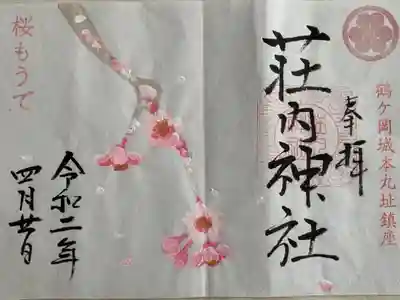 鶴ヶ岡城本丸址鎮座
奉拝
荘内神社
令和二年
四月廿日
桜もうで